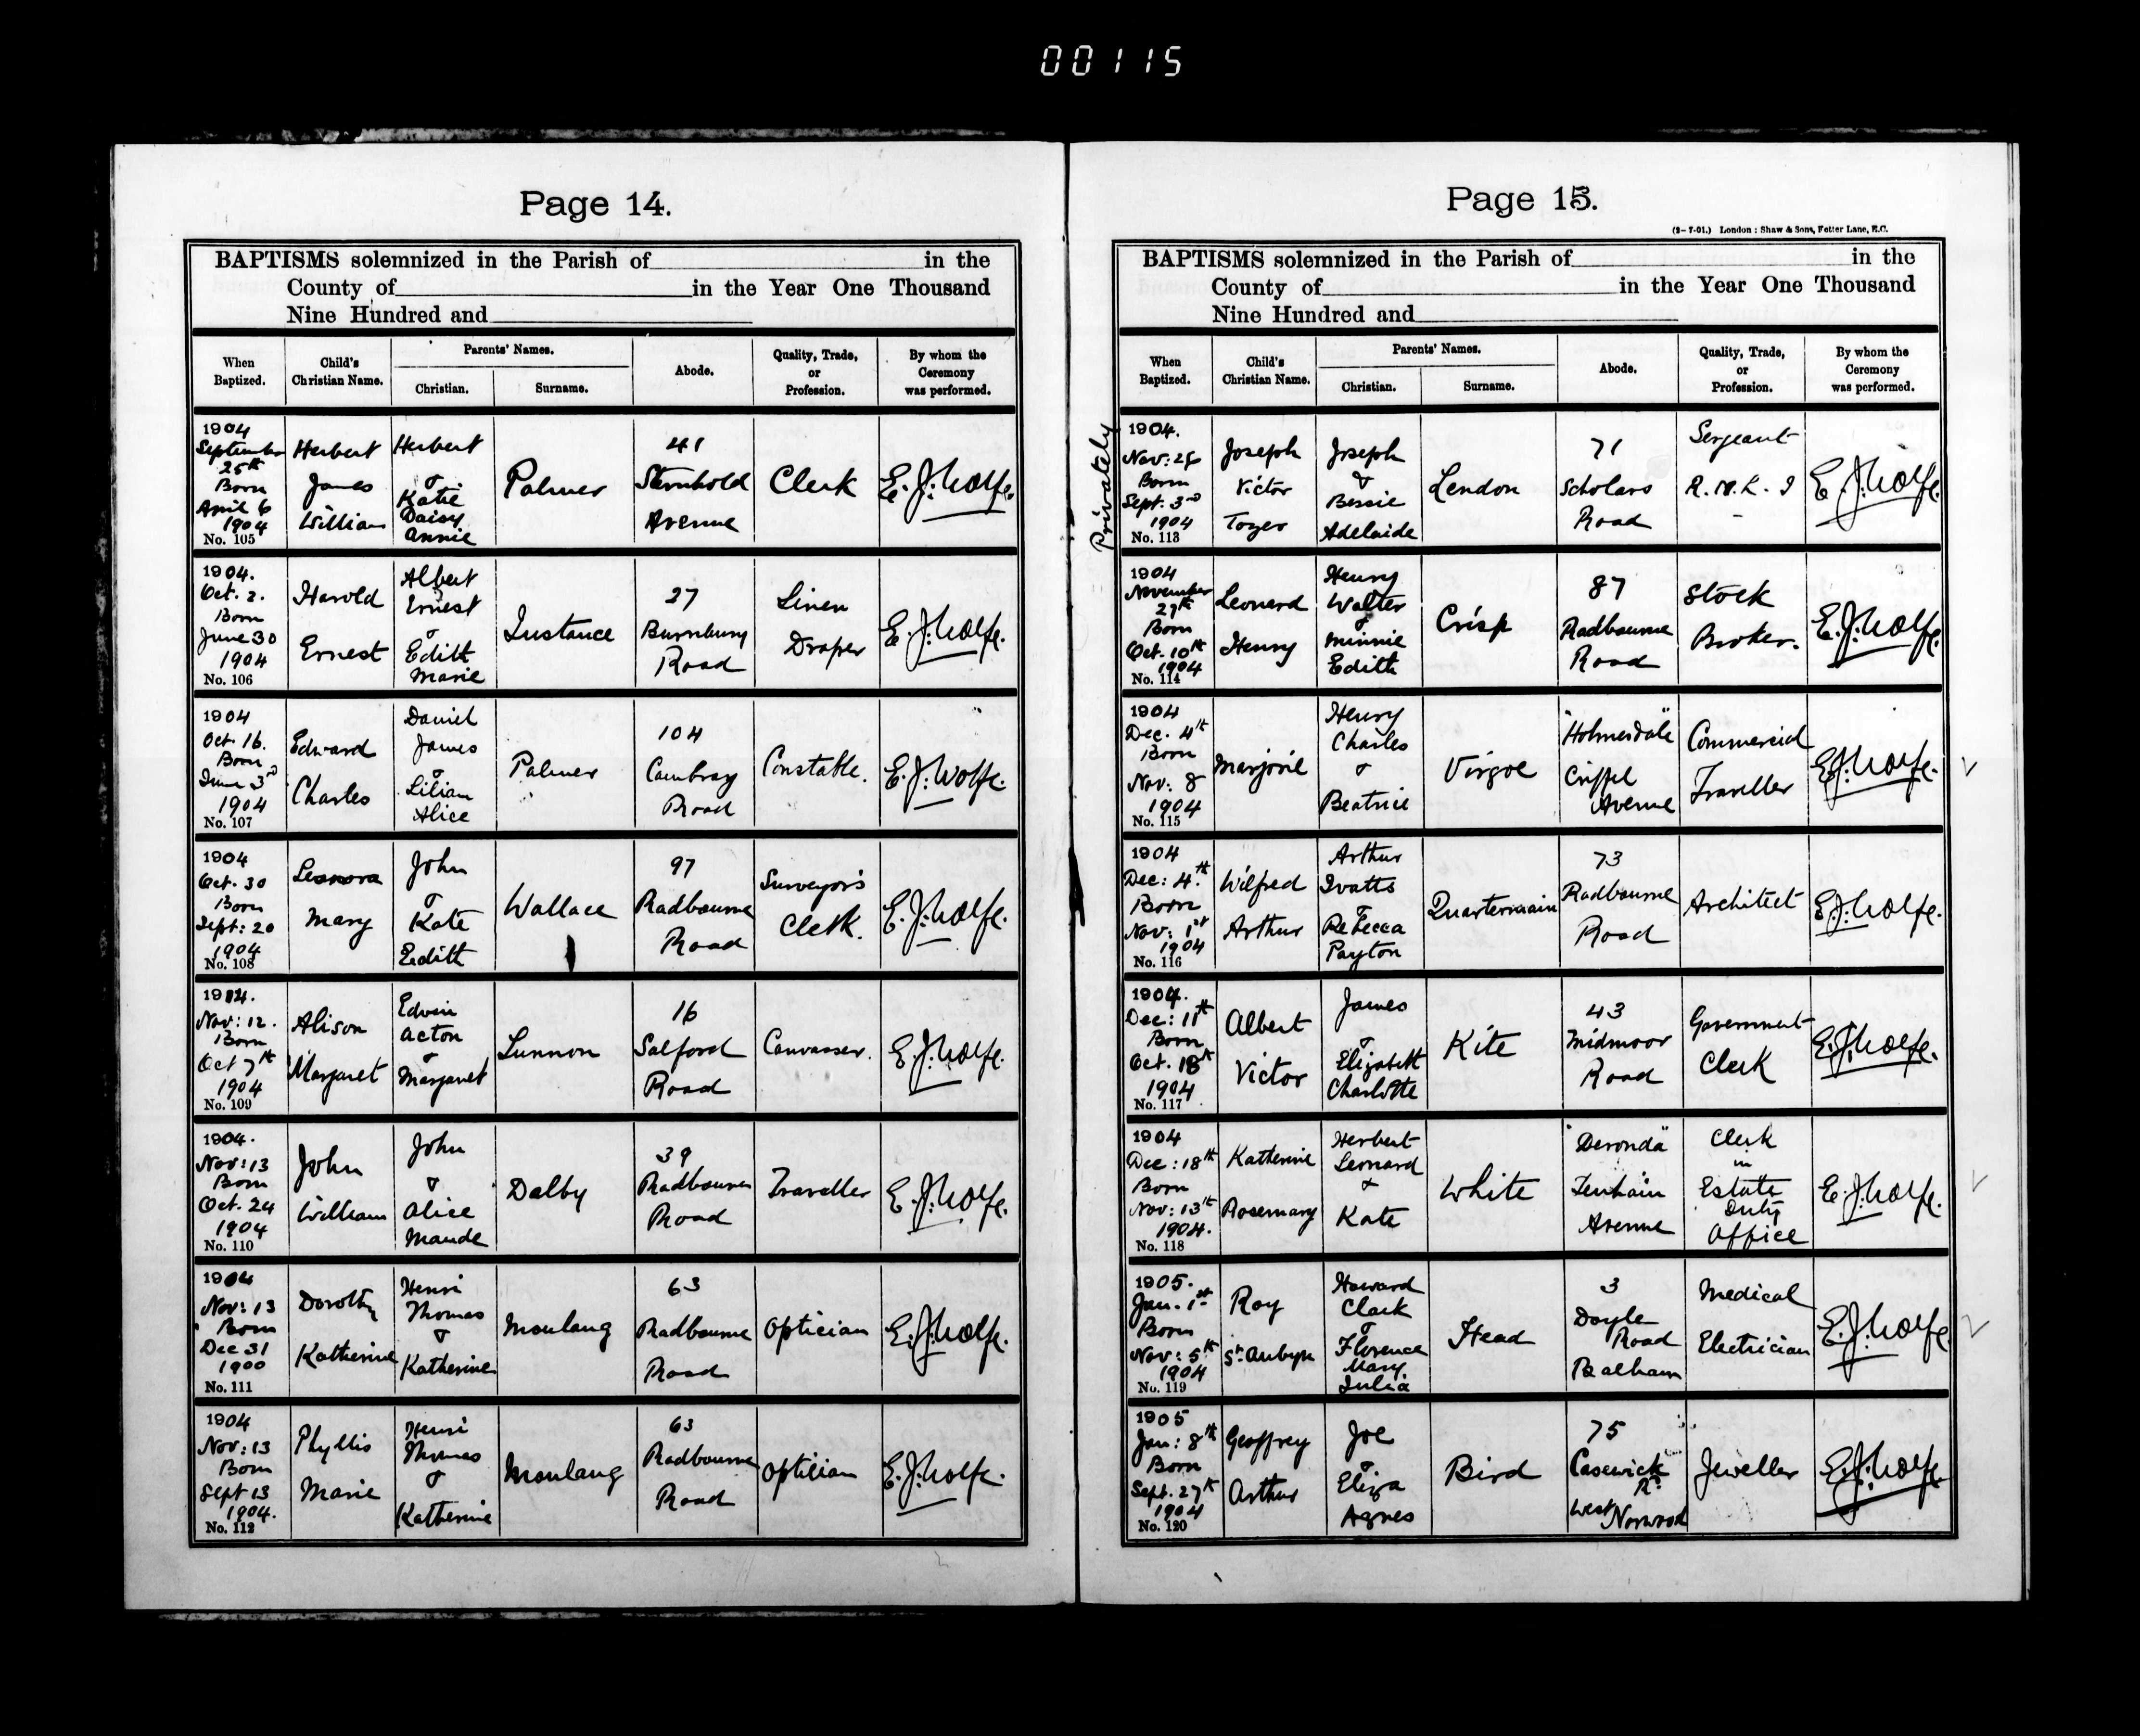 00115
Page 14.
BAPTISMS solemnized in the Parish of in the
County of in the Year One Thousand
Nine Hundred and
When Baptized.
Child's Christian Name.
Parents' Names.
Christian.
Surname.
Abode.
Quality, Trade, or Profession.
By whom the Ceremony was performed.
1904 September 25th Born April 6 1904 No. 105
Herbert James William
Herbert & Katie Daisy Annie
Palmer
41 Sternhold Avenue
Clerk
E. J. Wolfe.
1904. Oct. 2. Born June 30 1904 No. 106
Harold Ernest
Albert Ernest & Edith Marie
Instance
27 Burnbury Road
Linen Draper
E. J. Wolfe.
1904 Oct. 16. Born June 3rd 1904 No. 107
Edward Charles
Daniel James & Lilian Alice
Palmer
104 Cambray Road
Constable.
E. J. Wolfe.
1904 Oct. 30 Born Sept: 20 1904 No. 108
Leonora Mary
John & Kate Edith
Wallace
97 Radbourne Road
Surveyor's Clerk.
E. J. Wolfe.
1904. Nov: 12. Born Oct 7th 1904 No. 109
Alison Margaret
Edwin Acton & Margaret
Lunnon
16 Salford Road
Canvasser.
E. J. Wolfe.
1904. Nov: 13 Born Oct. 24 1904 No. 110
John William
John & Alice Maude
Dalby
39 Radbourne Road
Traveller
E. J. Wolfe.
1904 Nov: 13 Born Dec 31 1900 No. 111
Dorothy Katherine
Henri Thomas & Katherine
Moulang
63 Radbourne Road
Optician
E. J. Wolfe.
1904 Nov: 13 Born Sept 13 1904. No. 112
Phyllis Marie
Henri Thomas & Katherine
Moulang
63 Radbourne Road
Optician
E. J. Wolfe.
Page 15.
(2-7-01.) London: Shaw & Sons, Fetter Lane, E.C.
BAPTISMS solemnized in the Parish of in the
County of in the Year One Thousand
Nine Hundred and
When Baptized.
Child's Christian Name.
Parents' Names.
Christian.
Surname.
Abode.
Quality, Trade, or Profession.
By whom the Ceremony was performed.
Privately
1904. Nov: Born Sept. 3rd 1904 No. 113
Joseph Victor Tozer
Joseph & Bessie Adelaide
Lendon
71 Scholars Road
Sergeant
E. J. Wolfe.
1904 November 27th Born Oct. 10th 1904 No. 114
Leonard Henry
Henry Walter & Minnie Edith
Crisp
87 Radbourne Road
Stock Broker.
E. J. Wolfe.
1904 Dec. 4th Born Nov: 8 1904 No. 115
Marjorie
Henry Charles & Beatrice
Virgoe
"Holmesdale" Criffel Avenue
Commercial Traveller
E. J. Wolfe.
1904 Dec: 4th Born Nov: 1st 1904 No. 116
Wilfred Arthur
Arthur Ivatts & Rebecca Payton
Quartermain
73 Radbourne Road
Architect
E. J. Wolfe.
1904. Dec: 11th Born Oct. 18th 1904 No. 117
Albert Victor
James & Elizabeth Charlotte
Kite
43 Midmoor Road
Government Clerk
E. J. Wolfe.
1904 Dec: 18th Born Nov: 13th 1904. No. 118
Katherine Rosemary
Herbert Leonard & Kate
White
"Deronda" Tenham Avenue
Clerk in Estate Duty Office
E. J. Wolfe.
1905. Jan. 1st Born Nov: 5th 1904 No. 119
Roy St. Aubyn
Howard Clark & Florence Mary Julia
Head
3 Doyle Road Balham
Medical Electrician
E. J. Wolfe.
1905 Jan: 8th Born Sept. 27th 1904 No. 120
Geoffrey Arthur
Joe & Eliza Agnes
Bird
75 Casewick Rd. West Norwood
Jeweller
E. J. Wolfe.